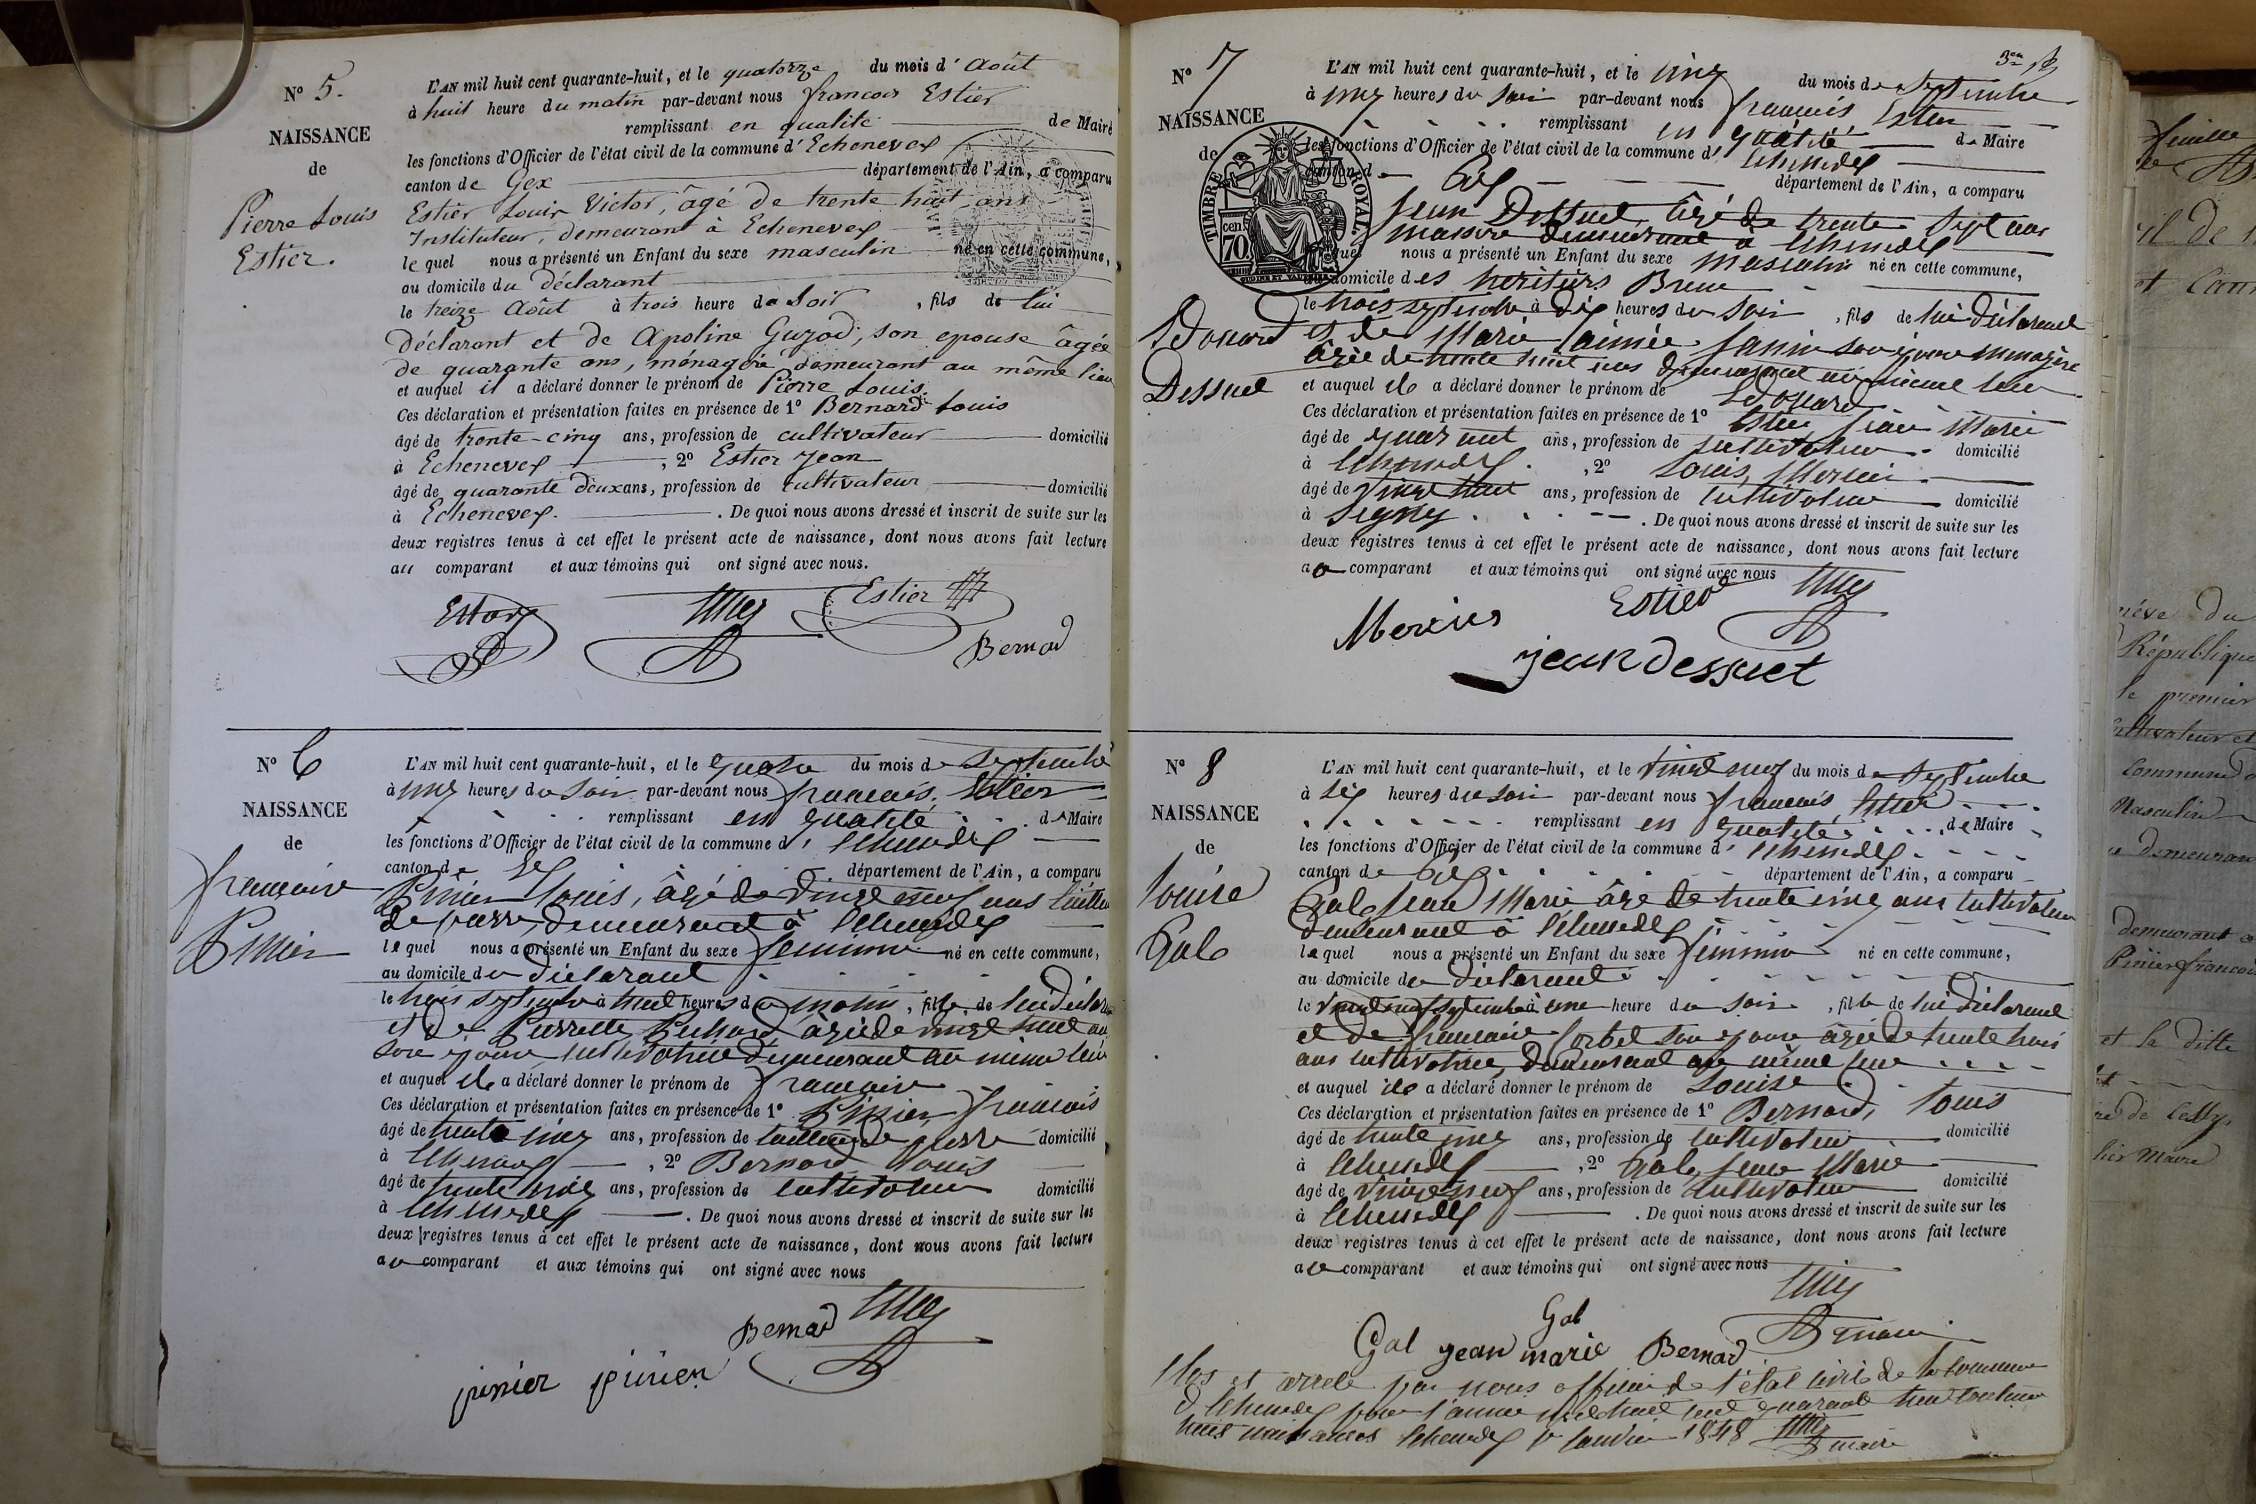 N° 5.
NAISSANCE
de
Pierre Louis
Estier.
L'AN mil huit cent quarante-huit, et le quatorze du mois d'Août
à huit heure du matin par-devant nous francois Estier
remplissant en qualité de Maire
les fonctions d'Officier de l'état civil de la commune d'Echenevex
canton de Gex département de l'Ain, a comparu
Estier Louis Victor, âgé de trente huit ans
Instituteur, demeurant à Echenevex
le quel nous a présenté un Enfant du sexe masculin né en cette commune,
au domicile du déclarant
le treize Août à trois heure du Soir, fils de lui
déclarant et de Apoline Guzod, son epouse âgée
de quarante ans, ménagère demeurant au même lieu
et auquel il a déclaré donner le prénom de Pierre Louis.
Ces déclaration et présentation faites en présence de 1° Bernard Louis
âgé de trente-cinq ans, profession de cultivateur domicilié
à Echenevex, 2° Estier Jean
âgé de quarante deux ans, profession de cultivateur domicilié
à Echenevex. De quoi nous avons dressé et inscrit de suite sur les
deux registres tenus à cet effet le présent acte de naissance, dont nous avons fait lecture
au comparant et aux témoins qui ont signé avec nous.
Estier
Bernad
N° 6
NAISSANCE
de
françoise
Pinier
L'AN mil huit cent quarante-huit, et le quatre du mois de septembre
à cinq heures du Soir par-devant nous francois Estier
remplissant en qualité de Maire
les fonctions d'Officier de l'état civil de la commune d'Echenevex
canton de Gex département de l'Ain, a comparu
Pinier Louis, âgé de vingt neuf ans tailleur
de pierre, demeurant à Echenevex
le quel nous a présenté un Enfant du sexe feminin né en cette commune,
au domicile du déclarant
le trois septembre à huit heures du matin, fille de lui déclarant
et de Pierrette âgée de vingt huit ans
son epouse cultivatrice demeurant au même lieu
et auquel il a déclaré donner le prénom de françoise
Ces déclaration et présentation faites en présence de 1° Pinier, francois
âgé de trente cinq ans, profession de tailleur de pierre domicilié
à Echenevex, 2° Bernard Louis
âgé de trente cinq ans, profession de cultivateur domicilié
à Echenevex. De quoi nous avons dressé et inscrit de suite sur les
deux registres tenus à cet effet le présent acte de naissance, dont nous avons fait lecture
au comparant et aux témoins qui ont signé avec nous
Bernad
pinier pinier
N° 7
NAISSANCE
de
Edouard
Dessuet
TIMBRE ROYAL
70 cen.
L'AN mil huit cent quarante-huit, et le cinq du mois de Septembre
à cinq heures du soir par-devant nous francois Estier
remplissant en qualité de Maire
les fonctions d'Officier de l'état civil de la commune d'Echenevex
canton d Gex département de l'Ain, a comparu
Jean Dessuet, âgé de trente sept ans
demeurant à Echenevex
quel nous a présenté un Enfant du sexe masculin né en cette commune,
au domicile des héritiers
le trois septembre à dix heures du soir, fils de lui déclarant
et de Marie aimée son epouse menagère
âgée de trente huit ans demeurant au même lieu
et auquel il a déclaré donner le prénom de Edouard
Ces déclaration et présentation faites en présence de 1° Estier, Jean Marie
âgé de quarante ans, profession de cultivateur domicilié
à Echenevex, 2° Louis Mercier
âgé de vingt huit ans, profession de cultivateur domicilié
à Segny. De quoi nous avons dressé et inscrit de suite sur les
deux registres tenus à cet effet le présent acte de naissance, dont nous avons fait lecture
au comparant et aux témoins qui ont signé avec nous
Mercier Estier
jean dessuet
N° 8
NAISSANCE
de
Louise
Gal
L'AN mil huit cent quarante-huit, et le vingt neuf du mois de Septembre
à six heures du soir par-devant nous francois Estier
remplissant en qualité de Maire
les fonctions d'Officier de l'état civil de la commune d'Echenevex
canton de Gex département de l'Ain, a comparu
Gal Jean Marie âgé de trente cinq ans cultivateur
demeurant à Echenevex
le quel nous a présenté un Enfant du sexe féminin né en cette commune,
au domicile du déclarant
le vingt neuf septembre à une heure du soir, fille de lui déclarant
et de francoise son epouse âgée de trente trois
ans cultivatrice, demeurant au même lieu
et auquel il a déclaré donner le prénom de Louise
Ces déclaration et présentation faites en présence de 1° Bernard, Louis
âgé de trente cinq ans, profession de cultivateur domicilié
à Echenevex, 2° Gal Jean Marie
âgé de vingt neuf ans, profession de cultivateur domicilié
à Echenevex. De quoi nous avons dressé et inscrit de suite sur les
deux registres tenus à cet effet le présent acte de naissance, dont nous avons fait lecture
au comparant et aux témoins qui ont signé avec nous
Gal
Gal jean marie Bernad maire
Clos et arreté par nous officier de l'état civil de la commune
d'Echenevex pour l'année mil huit cent quarante huit contenant
huit naissances Echenevex 1er Janvier 1848
maire
République
le premier
commune
Masculin
demeurant
Pinier francois
et la ditte
de Cessy,
maire